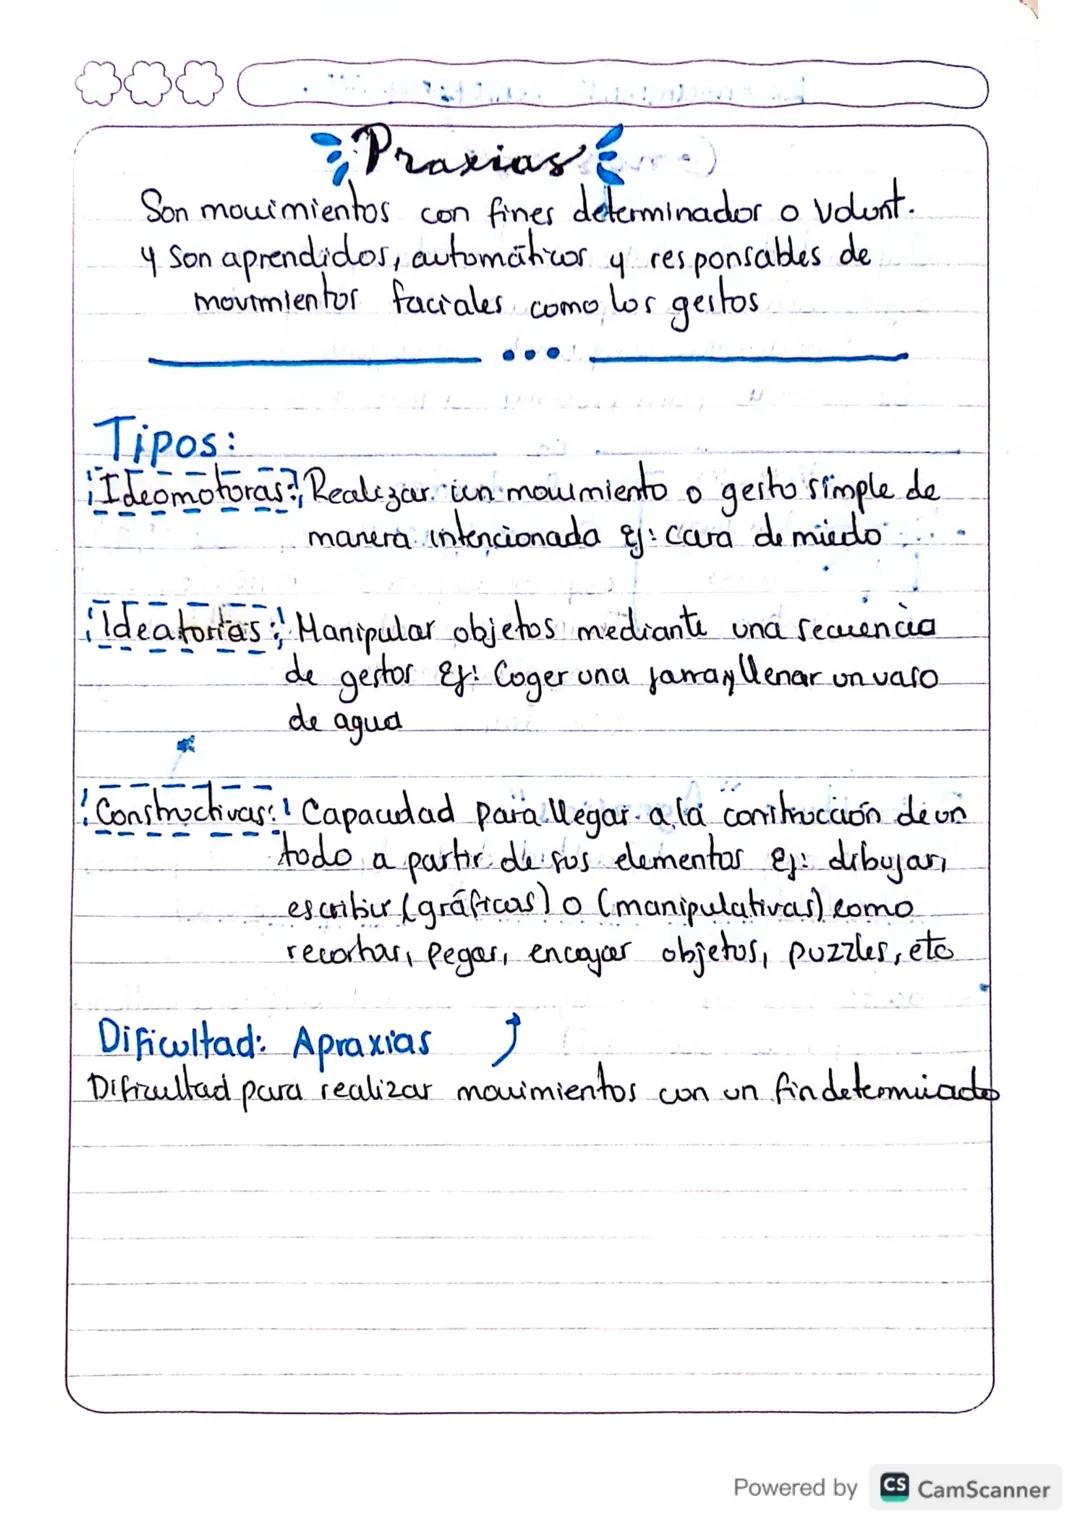 Praxias
Son movimientos con fines determinador o volunt.
y Son aprendidos, automáticos y responsables de
movimientos faciales como los gestos
Tipos:
Ideomotoras: Realizar un movimiento o gesto simple de
manera intencionada Ej: Cara de miedo
Ideatorias: Manipular objetos mediante una secuencia
de gestos Ej: Coger una jarra y llenar un vaso
de agua
Constructivas: Capacidad para llegar a la construcción de un
todo a partir de sus elementos Ej: dibujar,
escribir (gráficas) o (manipulativas) como
recortar, pegar, encajar objetos, puzzles, etc
Dificultad: Apraxias
Dificultad para realizar movimientos con un fin determinado
Powered by CS CamScanner